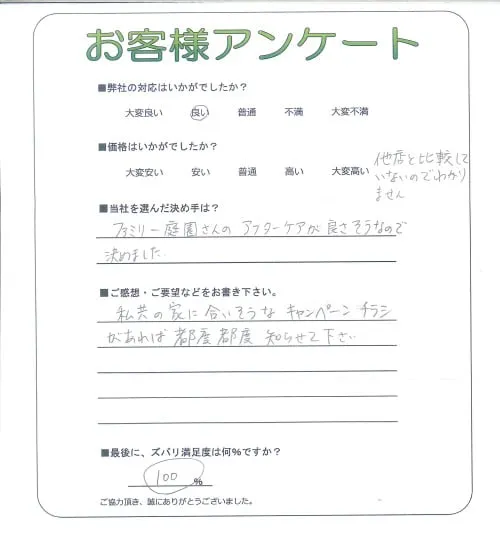 お客様アンケート
■弊社の対応はいかがでしたか？
大変良い 良い 普通 不満 大変不満
■価格はいかがでしたか？
大変安い 安い 普通 高い 大変高い
他店と比較して
いないのでわかり
ません
■当社を選んだ決め手は？
ファミリー庭園さんの アフターケアが良さそうなので
決めました.
■ご感想・ご要望などをお書き下さい。
私共の家に合いそうな キャンペーン チラシ
があれば 都度都度 知らせて下さい
■最後に、ズバリ満足度は何％ですか？
100 ％
ご協力頂き、誠にありがとうございました。